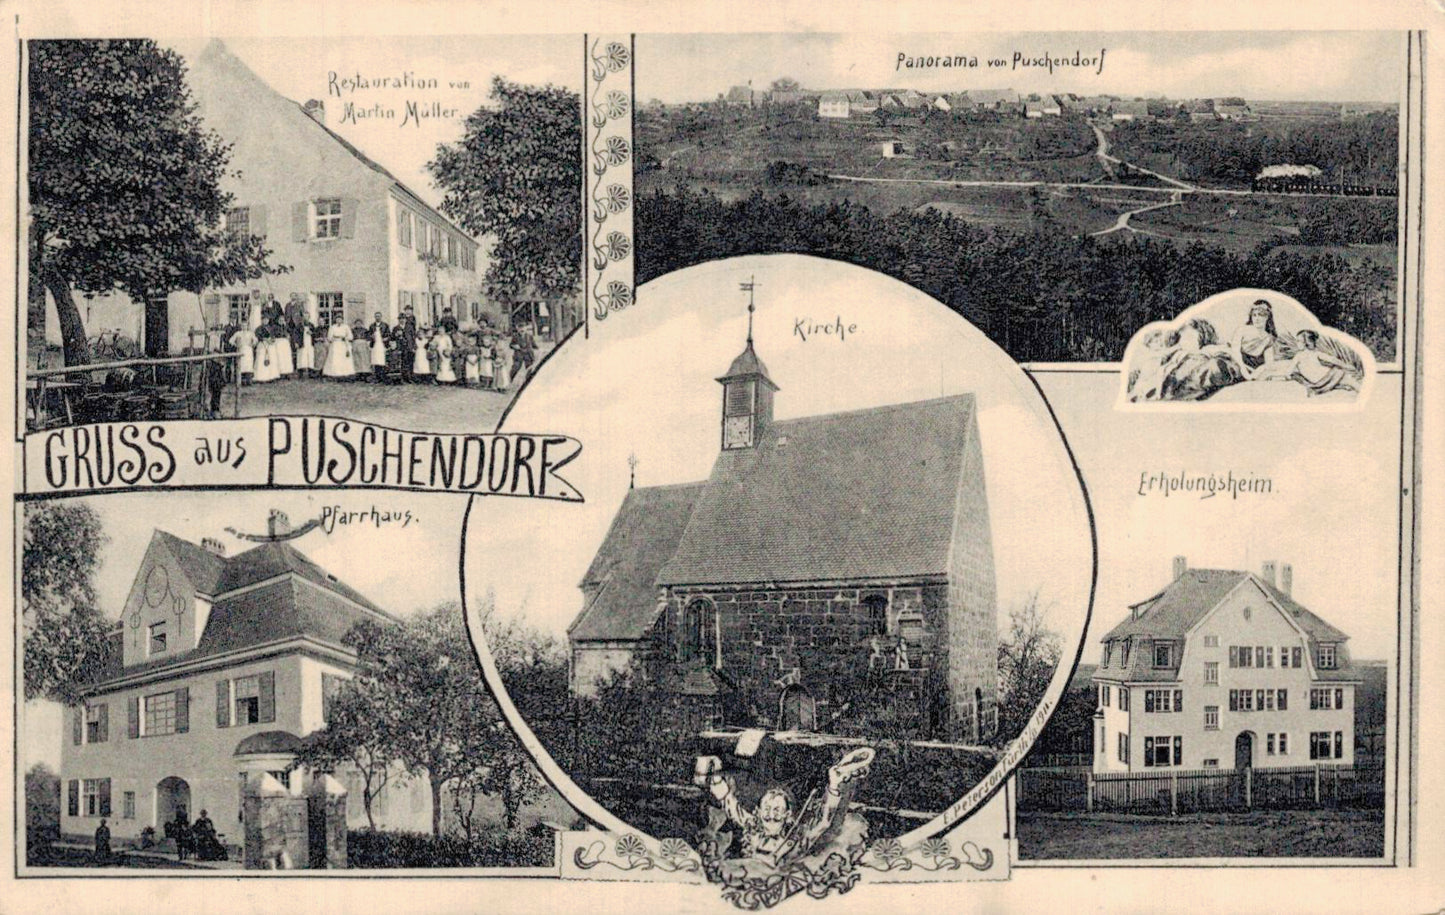 Restauration von
Martin Müller.
Panorama von Puschendorf
Kirche.
GRUSS aus PUSCHENDORF
Erholungsheim.
Pfarrhaus.
E. Peterson Fürth